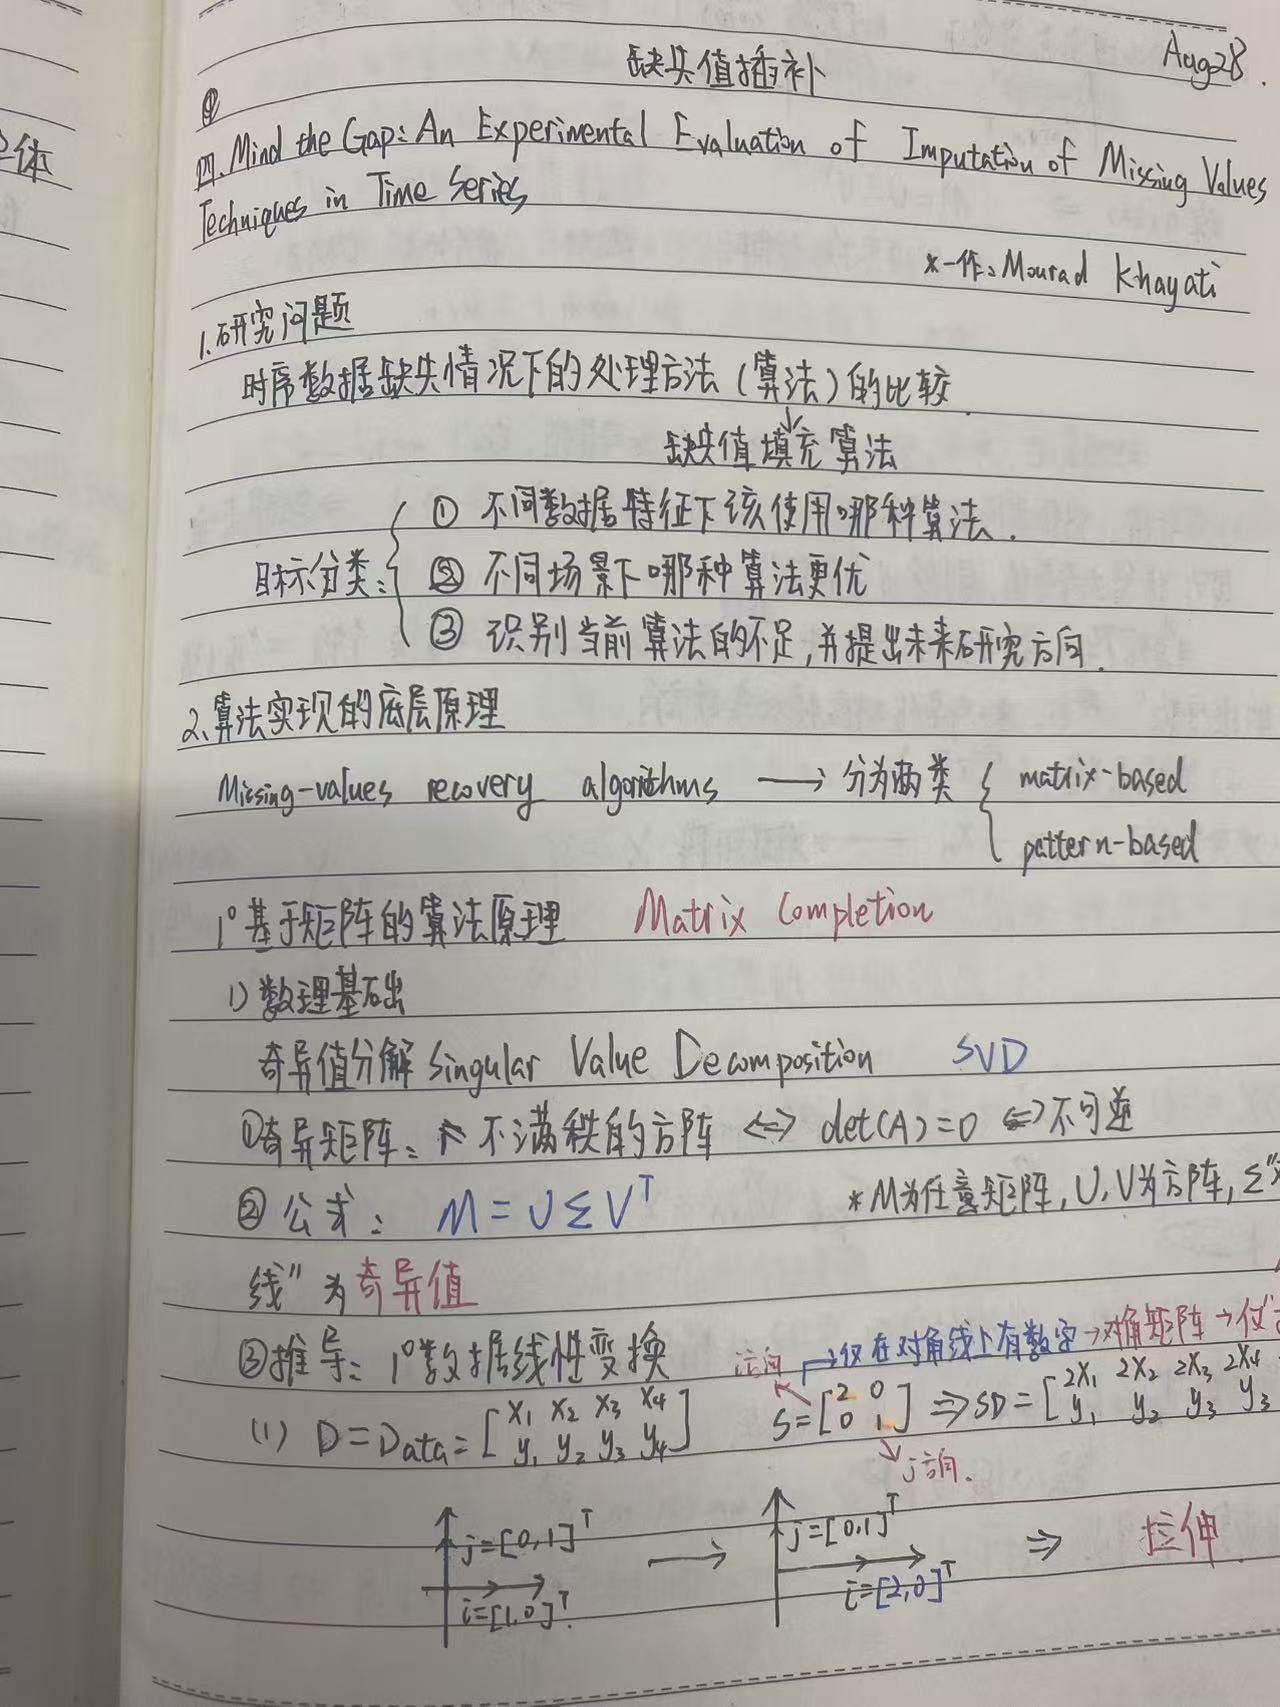 Aug28.
缺失值插补
四. Mind the Gap: An Experimental Evaluation of Imputation of Missing Values
Techniques in Time Series
*一作: Mourad Khayati
1. 研究问题
时序数据缺失情况下的处理方法(算法)的比较.
缺失值填充算法
目标分类:
① 不同数据特征下该使用哪种算法.
② 不同场景下哪种算法更优
③ 识别当前算法的不足,并提出未来研究方向.
2. 算法实现的底层原理
Missing-values recovery algorithms → 分为两类 { matrix-based
pattern-based
1° 基于矩阵的算法原理 Matrix Completion
1) 数理基础
奇异值分解 Singular Value Decomposition SVD
①奇异矩阵: 不满秩的方阵 ⟺ det(A)=0 ⟺ 不可逆
② 公式: M = UΣV^T *M为任意矩阵, U,V为方阵, Σ"
线"为奇异值
③推导: 1°数据线性变换 i方向 →仅在对角线上有数字→对角矩阵→仅
(1) D=Data=[x₁ x₂ x₃ x₄
y₁ y₂ y₃ y₄] S=[2 0
0 1] ⇒ SD=[2x₁ 2x₂ 2x₃ 2x₄
y₁ y₂ y₃
j方向.
j=[0,1]^T → j=[0,1]^T ⇒ 拉伸
i=[1,0]^T. i=[2,0]^T
体